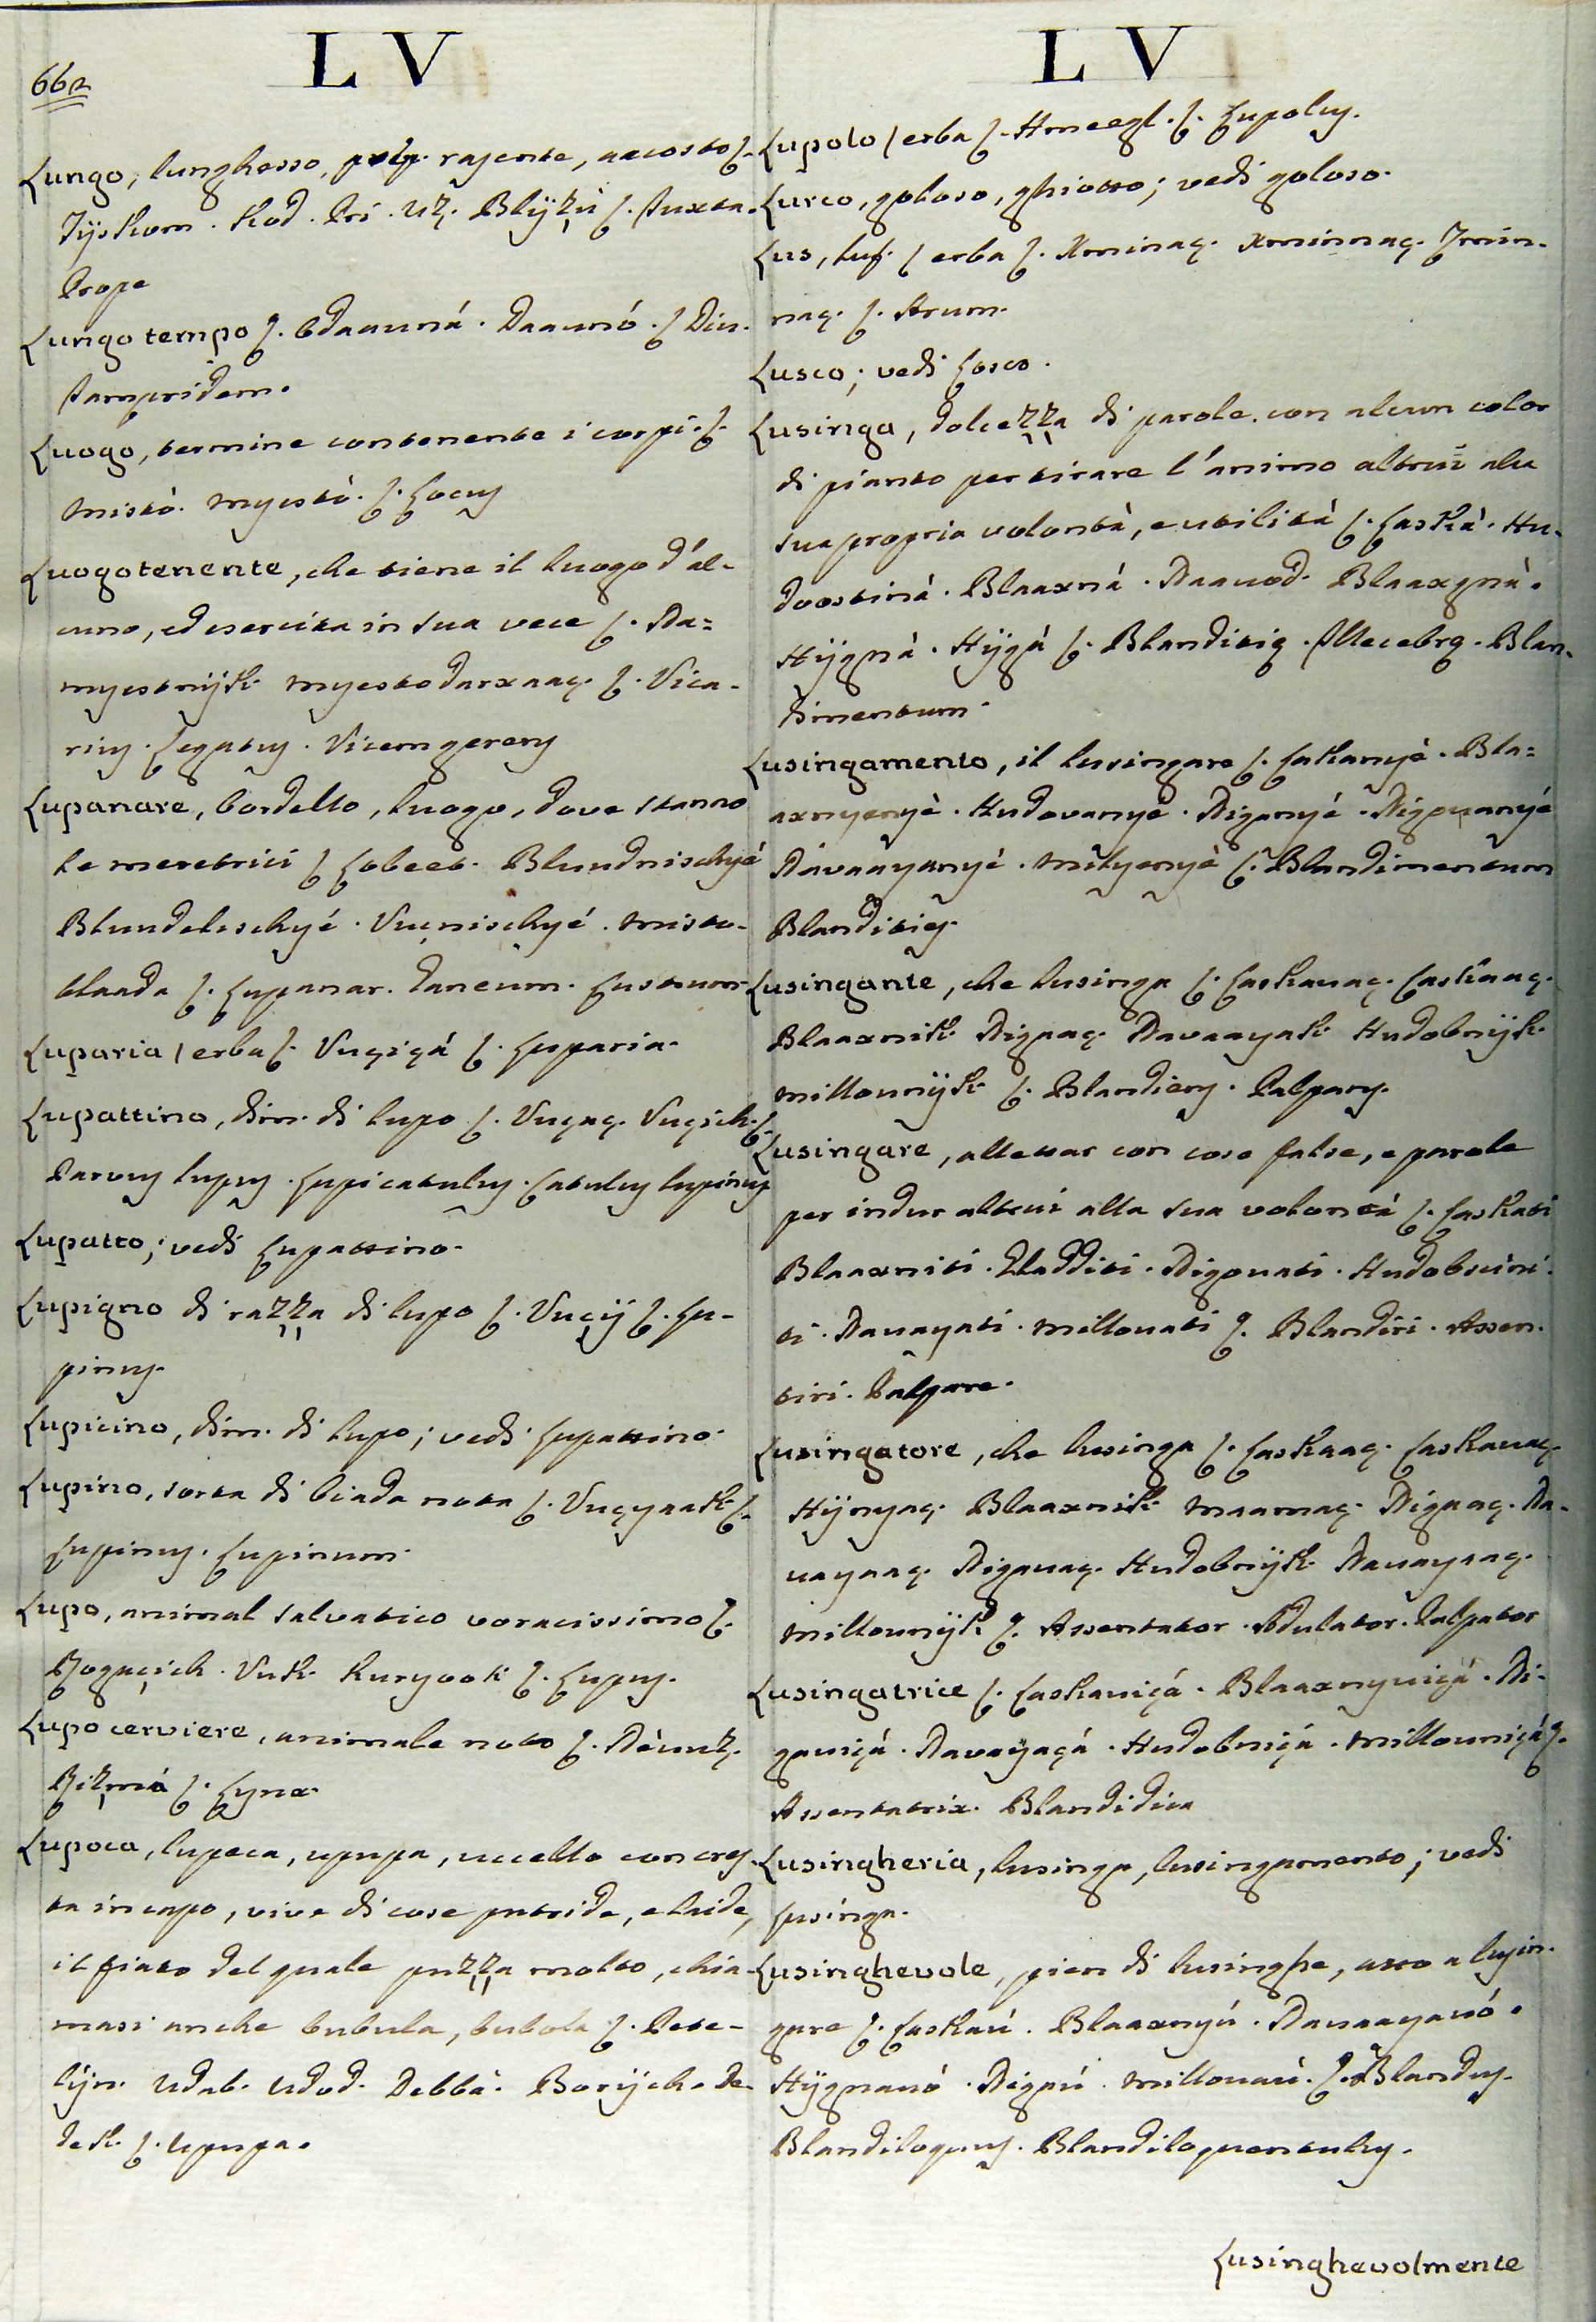 662
L V
Lungo, lunghesso, prep. rasente, accosto ſ.
Tijskom. Kod. Pri. Uz. Blijzu ſ. Iuxta.
Prope
Lungo tempo ſ. Odaauná. Daaunó. ſ Diu.
Iampridem.
Luogo, termine contenente i corpi. ſ.
Mistò. Myestò. ſ. Locus
Luogotenente, che tiene il luogo d'al-
cuno, ed esercita in sua vece ſ. Na=
myestnijk. Myestodarxaaç. ſ. Vica-
rius. Legatus. Vicem gerens
Lupanare, bordello, luogo, dove stanno
le meretrici ſ Lobeet. Bludnischyé
Blundilischyé. Vucnischyé. Misto-
blaada ſ. Lupanar. Ganeum. Lustrum.
Luparia / erba ſ. Vuçiçá ſ. Luparia.
Lupattino, dim. di lupo ſ. Vuçaç. Vuçich. ſ.
Parvus lupus. Lupi catulus. Catulus lupinus
Lupatto; vedi Lupattino.
Lupigno di razza di lupo ſ. Vuçij ſ. Lu-
pinus.
Lupicino, dim. di lupo; vedi Lupattino.
Lupino, sorta di biada nota ſ. Vuçyaak. ſ.
Lupinus. Lupinum.
Lupo, animal salvatico voracissimo ſ.
Vuk. Kuryook ſ. Lupus.
Lupo cerviere, animale noto ſ.
ſ. Lynx.
Lupoca, lupeca, upupa, uccello con cres-
ta in capo, vive di cose putride, e laide,
il fiato del quale puzza molto, chia-
masi anche bubula, bubola ſ. Pete-
lijn. Udab. Udod. Debbà. Borijch. De-
dek. ſ. Upupa.
L V
Lupolo / erba ſ. Hmeegl. ſ. Lupolus.
Lurco, goloso, ghiotto; vedi goloso.
Lus, luf. / erba ſ. Xminaç. Xminnaç. Jmin-
naç. ſ. Arum.
Lusco; vedi Losco.
Lusinga, dolcezza di parole con alcun color
di pianto per tirare l'animo altrui ala
sua propria volontà, e utilità ſ. Laskà. Hu-
doostiná. Blaaxná. Naauod. Blaaxgná.
Hijgná. Hijgá ſ. Blanditię. Illecebrę. Blan-
dimentum.
Lusingamento, il lusingare ſ. Laskanyé. Bla=
axnyenyé. Hudovanyé. Niganyé. Nigouanyé
Navaayanyé. Milyenyé ſ. Blandimentum
Blandities.
Lusingante, che lusinga ſ. Laskauaç. Laskaaç.
Blaaxnik. Nigaaç. Navaayak. Hudobnijk.
Millounijk. ſ. Blandiens. Palpans.
Lusingare, allettar con cose false, e parole
per indur altrui alla sua volontà ſ. Laskati
Blaaxniti. Gladditi. Nigouati. Hudobscini-
ti. Nauayati. Millouati ſ. Blandiri. Assen-
tiri. Palpare.
Lusingatore, che lusinga ſ. Laskaaç. Laskauaç.
Hijnyaç. Blaaxnik. Maamaç. Nigaaç. Na-
uayaaç. Nigauaç. Hudobnijk. Nauayaaç.
Millounijk ſ. Assentator. Adulator. Palpator
Lusingatrice ſ. Laskauiçá. Blaaxnyuiçá. Ni-
gauiçá. Navayaçá. Hudobniçá. Millouniçá ſ.
Assentatrix. Blandidica
Lusingheria, lusinga, lusingamento; vedi
Lusinga.
Lusinghevole, pien di lusinghe, atto a lusin-
gare ſ. Laskaú. Blaaxnyú. Nauaayauó.
Hijgnauó. Nigaú. Millouaú. ſ. Blandus.
Blandiloquus. Blandiloquentulus.
Lusinghevolmente